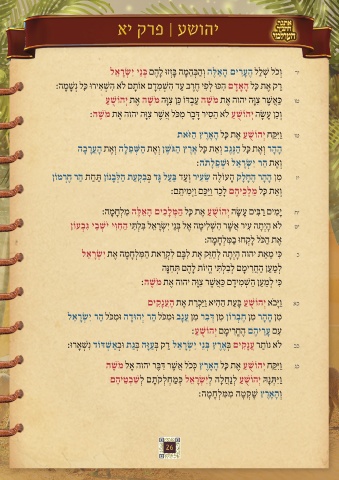 יהושע | פרק יא
יד וְכֹל שְׁלַל הֶעָרִים הָאֵלֶּה וְהַבְּהֵמָה בָּזְזוּ לָהֶם בְּנֵי יִשְׂרָאֵל
רַק אֶת כָּל הָאָדָם הִכּוּ לְפִי חֶרֶב עַד הִשְׁמִדָם אוֹתָם לֹא הִשְׁאִירוּ כָּל נְשָׁמָה:
טו כַּאֲשֶׁר צִוָּה יהוה אֶת מֹשֶׁה עַבְדּוֹ כֵּן צִוָּה מֹשֶׁה אֶת יְהוֹשֻׁעַ
וְכֵן עָשָׂה יְהוֹשֻׁעַ לֹא הֵסִיר דָּבָר מִכֹּל אֲשֶׁר צִוָּה יהוה אֶת מֹשֶׁה:
טז וַיִּקַּח יְהוֹשֻׁעַ אֶת כָּל הָאָרֶץ הַזֹּאת
הָהָר וְאֶת כָּל הַנֶּגֶב וְאֵת כָּל אֶרֶץ הַגֹּשֶׁן וְאֶת הַשְּׁפֵלָה וְאֶת הָעֲרָבָה
וְאֶת הַר יִשְׂרָאֵל וּשְׁפֵלָתֹה:
יז מִן הָהָר הֶחָלָק הָעוֹלֶה שֵׂעִיר וְעַד בַּעַל גָּד בְּבִקְעַת הַלְּבָנוֹן תַּחַת הַר חֶרְמוֹן
וְאֵת כָּל מַלְכֵיהֶם לָכַד וַיַּכֵּם וַיְמִיתֵם:
יח יָמִים רַבִּים עָשָׂה יְהוֹשֻׁעַ אֶת כָּל הַמְּלָכִים הָאֵלֶּה מִלְחָמָה:
יט לֹא הָיְתָה עִיר אֲשֶׁר הִשְׁלִימָה אֶל בְּנֵי יִשְׂרָאֵל בִּלְתִּי הַחִוִּי יֹשְׁבֵי גִבְעוֹן
אֶת הַכֹּל לָקְחוּ בַמִּלְחָמָה:
כ כִּי מֵאֵת יהוה הָיְתָה לְחַזֵּק אֶת לִבָּם לִקְרַאת הַמִּלְחָמָה אֶת יִשְׂרָאֵל
לְמַעַן הַחֲרִימָם לְבִלְתִּי הֱיוֹת לָהֶם תְּחִנָּה
כִּי לְמַעַן הַשְׁמִידָם כַּאֲשֶׁר צִוָּה יהוה אֶת מֹשֶׁה:
כא וַיָּבֹא יְהוֹשֻׁעַ בָּעֵת הַהִיא וַיַּכְרֵת אֶת הָעֲנָקִים
מִן הָהָר מִן חֶבְרוֹן מִן דְּבִר מִן עֲנָב וּמִכֹּל הַר יְהוּדָה וּמִכֹּל הַר יִשְׂרָאֵל
עִם עָרֵיהֶם הֶחֱרִימָם יְהוֹשֻׁעַ:
כב לֹא נוֹתַר עֲנָקִים בְּאֶרֶץ בְּנֵי יִשְׂרָאֵל רַק בְּעַזָּה בְּגַת וּבְאַשְׁדּוֹד נִשְׁאָרוּ:
כג וַיִּקַּח יְהוֹשֻׁעַ אֶת כָּל הָאָרֶץ כְּכֹל אֲשֶׁר דִּבֶּר יהוה אֶל מֹשֶׁה
וַיִּתְּנָהּ יְהוֹשֻׁעַ לְנַחֲלָה לְיִשְׂרָאֵל כְּמַחְלְקֹתָם לְשִׁבְטֵיהֶם
וְהָאָרֶץ שָׁקְטָה מִמִּלְחָמָה:
26